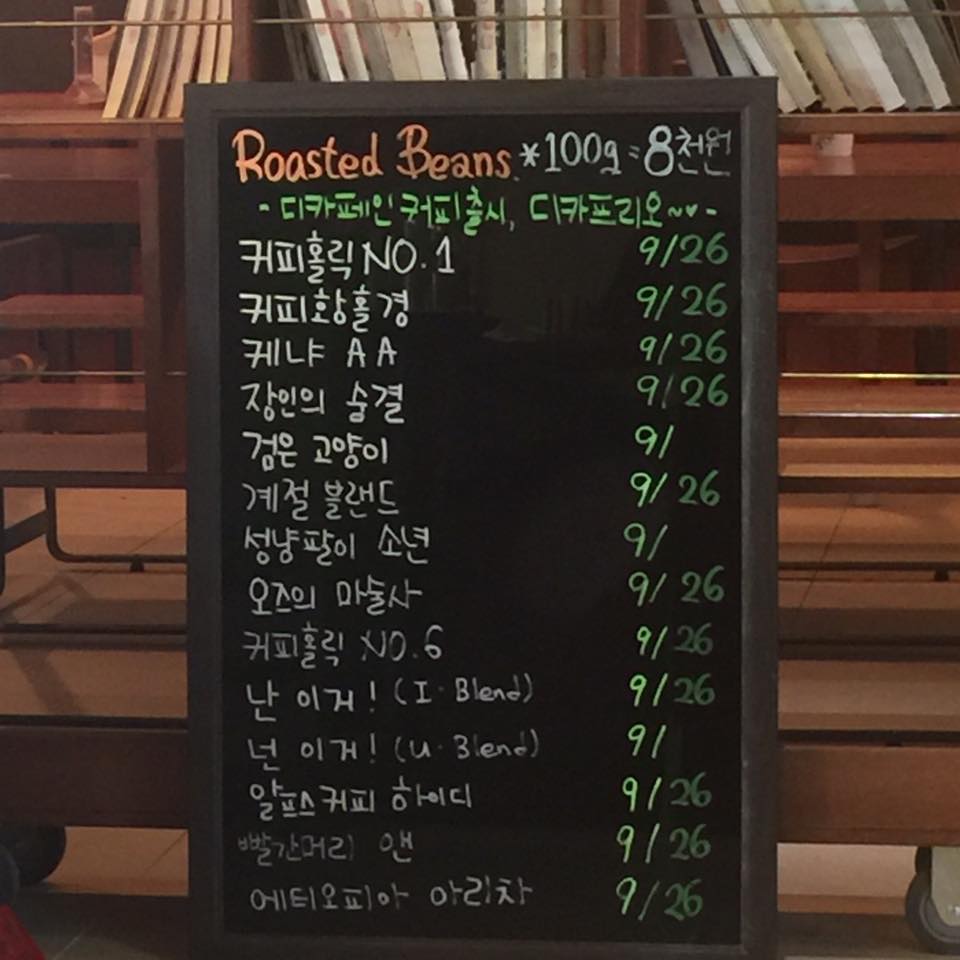 Roasted Beans. *100g = 8천원
- 디카페인 커피출시, 디카프리오~♥-
커피홀릭 NO.1 9/26
커피황홀경 9/26
케냐 AA 9/26
장인의 숨결 9/26
검은 고양이 9/
계절 블랜드 9/26
성냥팔이 소년 9/
오즈의 마술사 9/26
커피홀릭 NO.6 9/26
난 이거! (I·Blend) 9/26
넌 이거! (U·Blend) 9/
알프스커피 하이디 9/26
빨간머리 앤 9/26
에티오피아 아리차 9/26